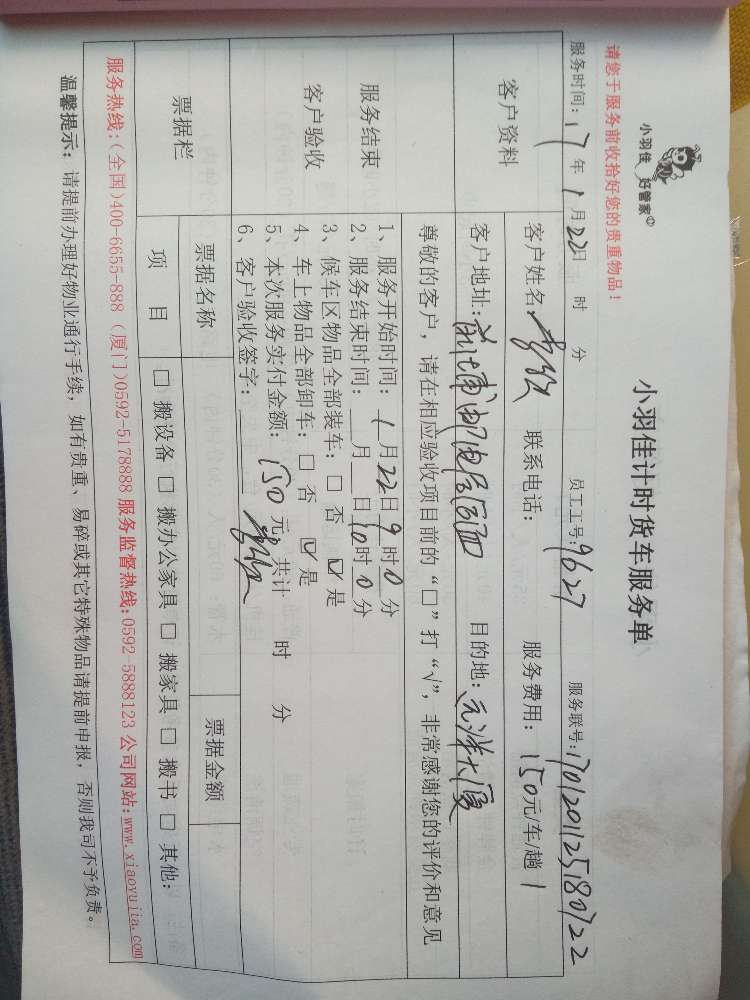 小羽佳 好管家
小羽佳计时货车服务单
请您于服务前收拾好您的贵重物品！
服务时间：17年1月22日 时 分 员工工号：9627 服务联号：1701201125180122
客户资料
客户姓名： 联系电话： 服务费用：150元/车/趟 1
客户地址： 目的地：元洋大厦
服务结束
客户验收
尊敬的客户，请在相应验收项目前的“□”打“√”，非常感谢您的评价和意见
1、服务开始时间：1月22日9时0分
2、服务结束时间：月 日10时0分
3、候车区物品全部装车：□ 否 ☑ 是
4、车上物品全部卸车：□ 否 ☑ 是
5、本次服务实付金额：150元，共计 时 分
6、客户验收签字：
票据栏
票据名称 票据金额
项 目 □ 搬设备 □ 搬办公家具 □ 搬家具 □ 搬书 □ 其他：
服务热线：(全国)400-6655-888 (厦门)0592-5178888 服务监督热线:0592-5888123 公司网站:www.xiaoyujia.com
温馨提示：请提前办理好物业通行手续，如有贵重、易碎或其它特殊物品请提前申报，否则我司不予负责。